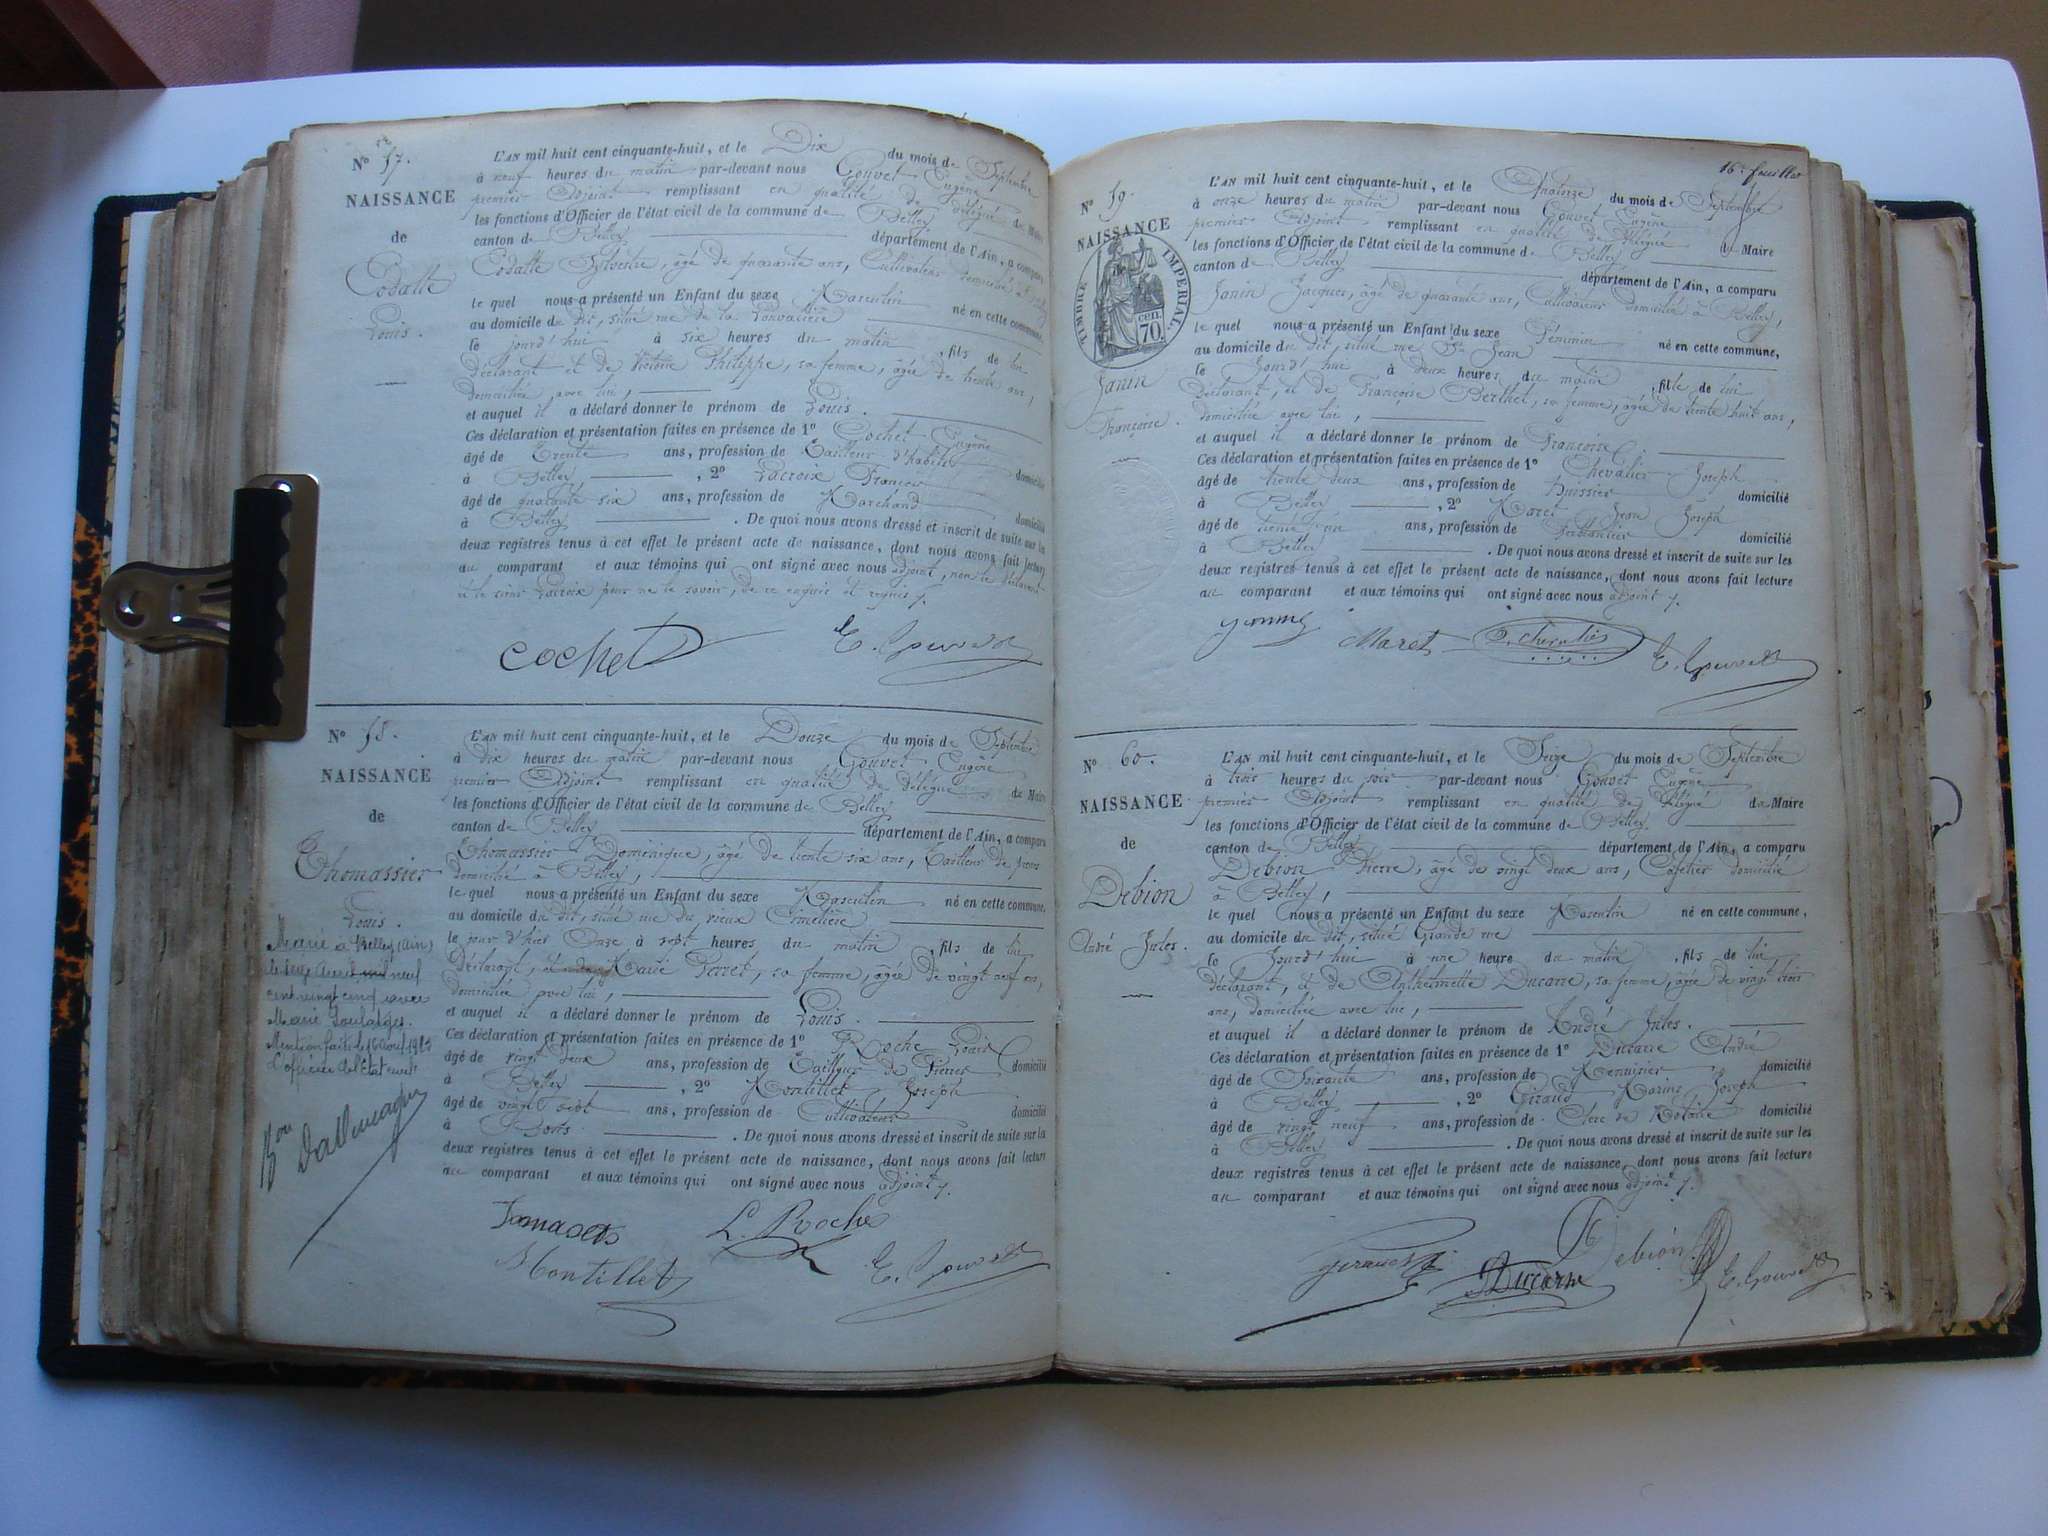 No 57.
NAISSANCE
de
Codatte
Louis.
L'AN mil huit cent cinquante-huit, et le Dix du mois de Septembre
à neuf heures du matin par-devant nous Gouvet Eugène
premier Adjoint remplissant en qualité de délégué du Maire
les fonctions d'Officier de l'état civil de la commune de Belley
canton de Belley département de l'Ain, a comparu
Codatte Sylvestre, âgé de quarante ans, Cultivateur domicilié à
le quel nous a présenté un Enfant du sexe Masculin
au domicile du dit, situé rue de la né en cette commune,
le jourd'hui à six heures du matin, fils de lui
déclarant et de Victoire Philippe, sa femme, âgée de trente ans,
domiciliée avec lui,
et auquel il a déclaré donner le prénom de Louis.
Ces déclaration et présentation faites en présence de 1º Cochet Eugène
âgé de trente ans, profession de Tailleur d'habits domicilié
à Belley, 2º Lacroix François
âgé de quarante six ans, profession de Marchand domicilié
à Belley. De quoi nous avons dressé et inscrit de suite sur les
deux registres tenus à cet effet le présent acte de naissance, dont nous avons fait lecture
au comparant et aux témoins qui ont signé avec nous adjoint, non le déclarant
ni le sieur Lacroix pour ne le savoir, de ce enquis et requis
cochet E. Gouvet
No 58.
NAISSANCE
de
Thomassier
Louis.
Marié à Belley (Ain)
le Avril mil neuf
cent vingt cinq avec
Marie
Mention faite le 16 Avril 192
L'officier de l'Etat civil
Bon Dallemagne
L'AN mil huit cent cinquante-huit, et le Douze du mois de Septembre
à dix heures du matin par-devant nous Gouvet Eugène
premier Adjoint remplissant en qualité de délégué du Maire
les fonctions d'Officier de l'état civil de la commune de Belley
canton de Belley département de l'Ain, a comparu
Thomassier Dominique, âgé de trente six ans, Tailleur de pierres
domicilié à Belley,
le quel nous a présenté un Enfant du sexe Masculin né en cette commune,
au domicile du dit, situé rue du vieux Cimetière
le jour d'hier Onze à sept heures du matin, fils de lui
déclarant, et Marie Perret, sa femme, âgée de vingt neuf ans,
domiciliée avec lui,
et auquel il a déclaré donner le prénom de Louis.
Ces déclaration et présentation faites en présence de 1º Roche Louis
âgé de vingt deux ans, profession de Tailleur de Pierres domicilié
à Belley, 2º Montillet Joseph
âgé de vingt sept ans, profession de Cultivateur domicilié
à Bons. De quoi nous avons dressé et inscrit de suite sur la
deux registres tenus à cet effet le présent acte de naissance, dont nous avons fait lecture
au comparant et aux témoins qui ont signé avec nous adjoint
L. Roche
Montillet E. Gouvet
16e feuillet
No 59.
NAISSANCE
de
TIMBRE IMPERIAL.
CEN.
70.
Janin
Françoise.
L'AN mil huit cent cinquante-huit, et le Quatorze du mois de Septembre
à onze heures du matin par-devant nous Gouvet Eugène
premier Adjoint remplissant en qualité de délégué du Maire
les fonctions d'Officier de l'état civil de la commune de Belley
canton de Belley département de l'Ain, a comparu
Janin Jacques, âgé de quarante ans, Cultivateur domicilié à Belley,
le quel nous a présenté un Enfant du sexe Féminin
au domicile du dit, situé rue St Jean né en cette commune,
le Jourd'hui à deux heures du matin, fille de lui
déclarant, et de Françoise Berthet, sa femme, âgée de trente huit ans,
domiciliée avec lui,
et auquel il a déclaré donner le prénom de Françoise
Ces déclaration et présentation faites en présence de 1º Chevalier Joseph
âgé de trente deux ans, profession de huissier domicilié
à Belley, 2º Maret Jean Joseph
âgé de trente un ans, profession de ferblantier domicilié
à Belley. De quoi nous avons dressé et inscrit de suite sur les
deux registres tenus à cet effet le présent acte de naissance, dont nous avons fait lecture
au comparant et aux témoins qui ont signé avec nous adjoint
Maret J. Chevalier E. Gouvet
No 60.
NAISSANCE
de
Debion
André Jules.
L'AN mil huit cent cinquante-huit, et le Seize du mois de Septembre
à trois heures du soir par-devant nous Gouvet Eugène
premier Adjoint remplissant en qualité de délégué du Maire
les fonctions d'Officier de l'état civil de la commune de Belley
canton de Belley département de l'Ain, a comparu
Debion Pierre, âgé de vingt deux ans, Cafetier domicilié
à Belley,
le quel nous a présenté un Enfant du sexe Masculin né en cette commune,
au domicile du dit, situé Grande rue
le Jourd'hui à une heure du matin, fils de lui,
déclarant, et de Anthelmette Ducarre, sa femme, âgée de vingt trois
ans, domiciliée avec lui,
et auquel il a déclaré donner le prénom de André Jules.
Ces déclaration et présentation faites en présence de 1º Ducarre André
âgé de Soixante ans, profession de Menuisier domicilié
à Belley, 2º Giraud Marins Joseph
âgé de vingt neuf ans, profession de Clerc de Notaire domicilié
à Belley. De quoi nous avons dressé et inscrit de suite sur les
deux registres tenus à cet effet le présent acte de naissance, dont nous avons fait lecture
au comparant et aux témoins qui ont signé avec nous adjoint
Ducarre Debion E. Gouvet